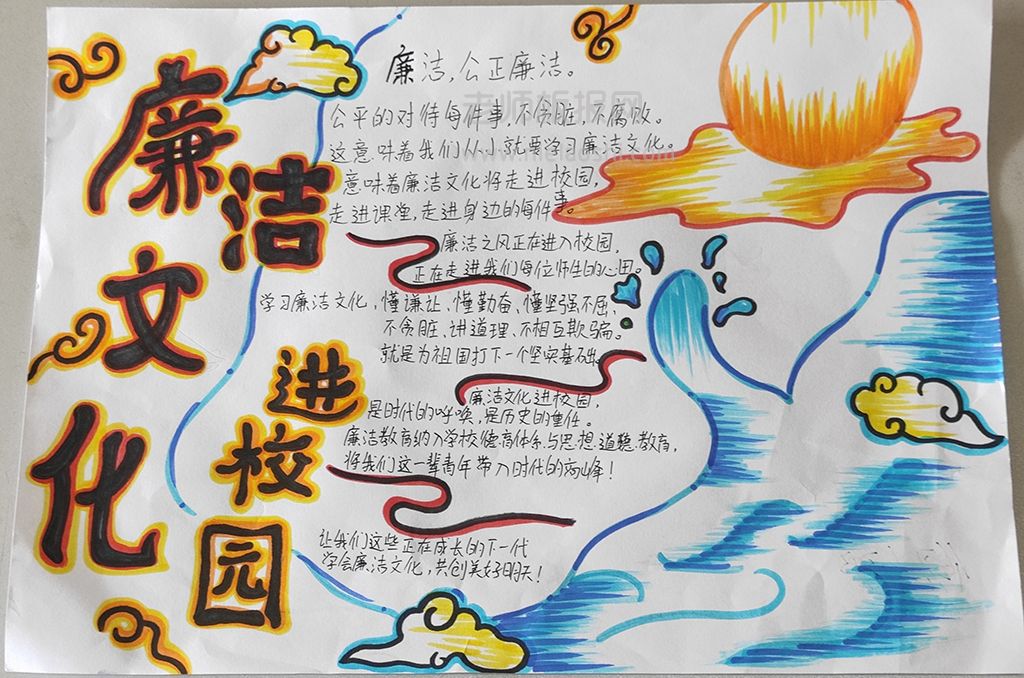 廉洁文化
进校园
廉洁，公正廉洁。
公平的对待每件事，不贪脏，不腐败。
这意味着我们从小就要学习廉洁文化。
意味着廉洁文化将走进校园，
走进课堂，走进身边的每件事。
廉洁之风正在进入校园，
正在走进我们每位师生的心田。
学习廉洁文化，懂谦让、懂勤奋、懂坚强不屈，
不贪脏、讲道理、不相互欺骗。
就是为祖国打下一个坚实基础。
廉洁文化进校园，
是时代的呼唤，是历史的重任。
廉洁教育纳入学校德育体系与思想道德教育，
将我们这一辈青年带入时代的高峰！
让我们这些正在成长的下一代
学会廉洁文化，共创美好明天！
老师板报网